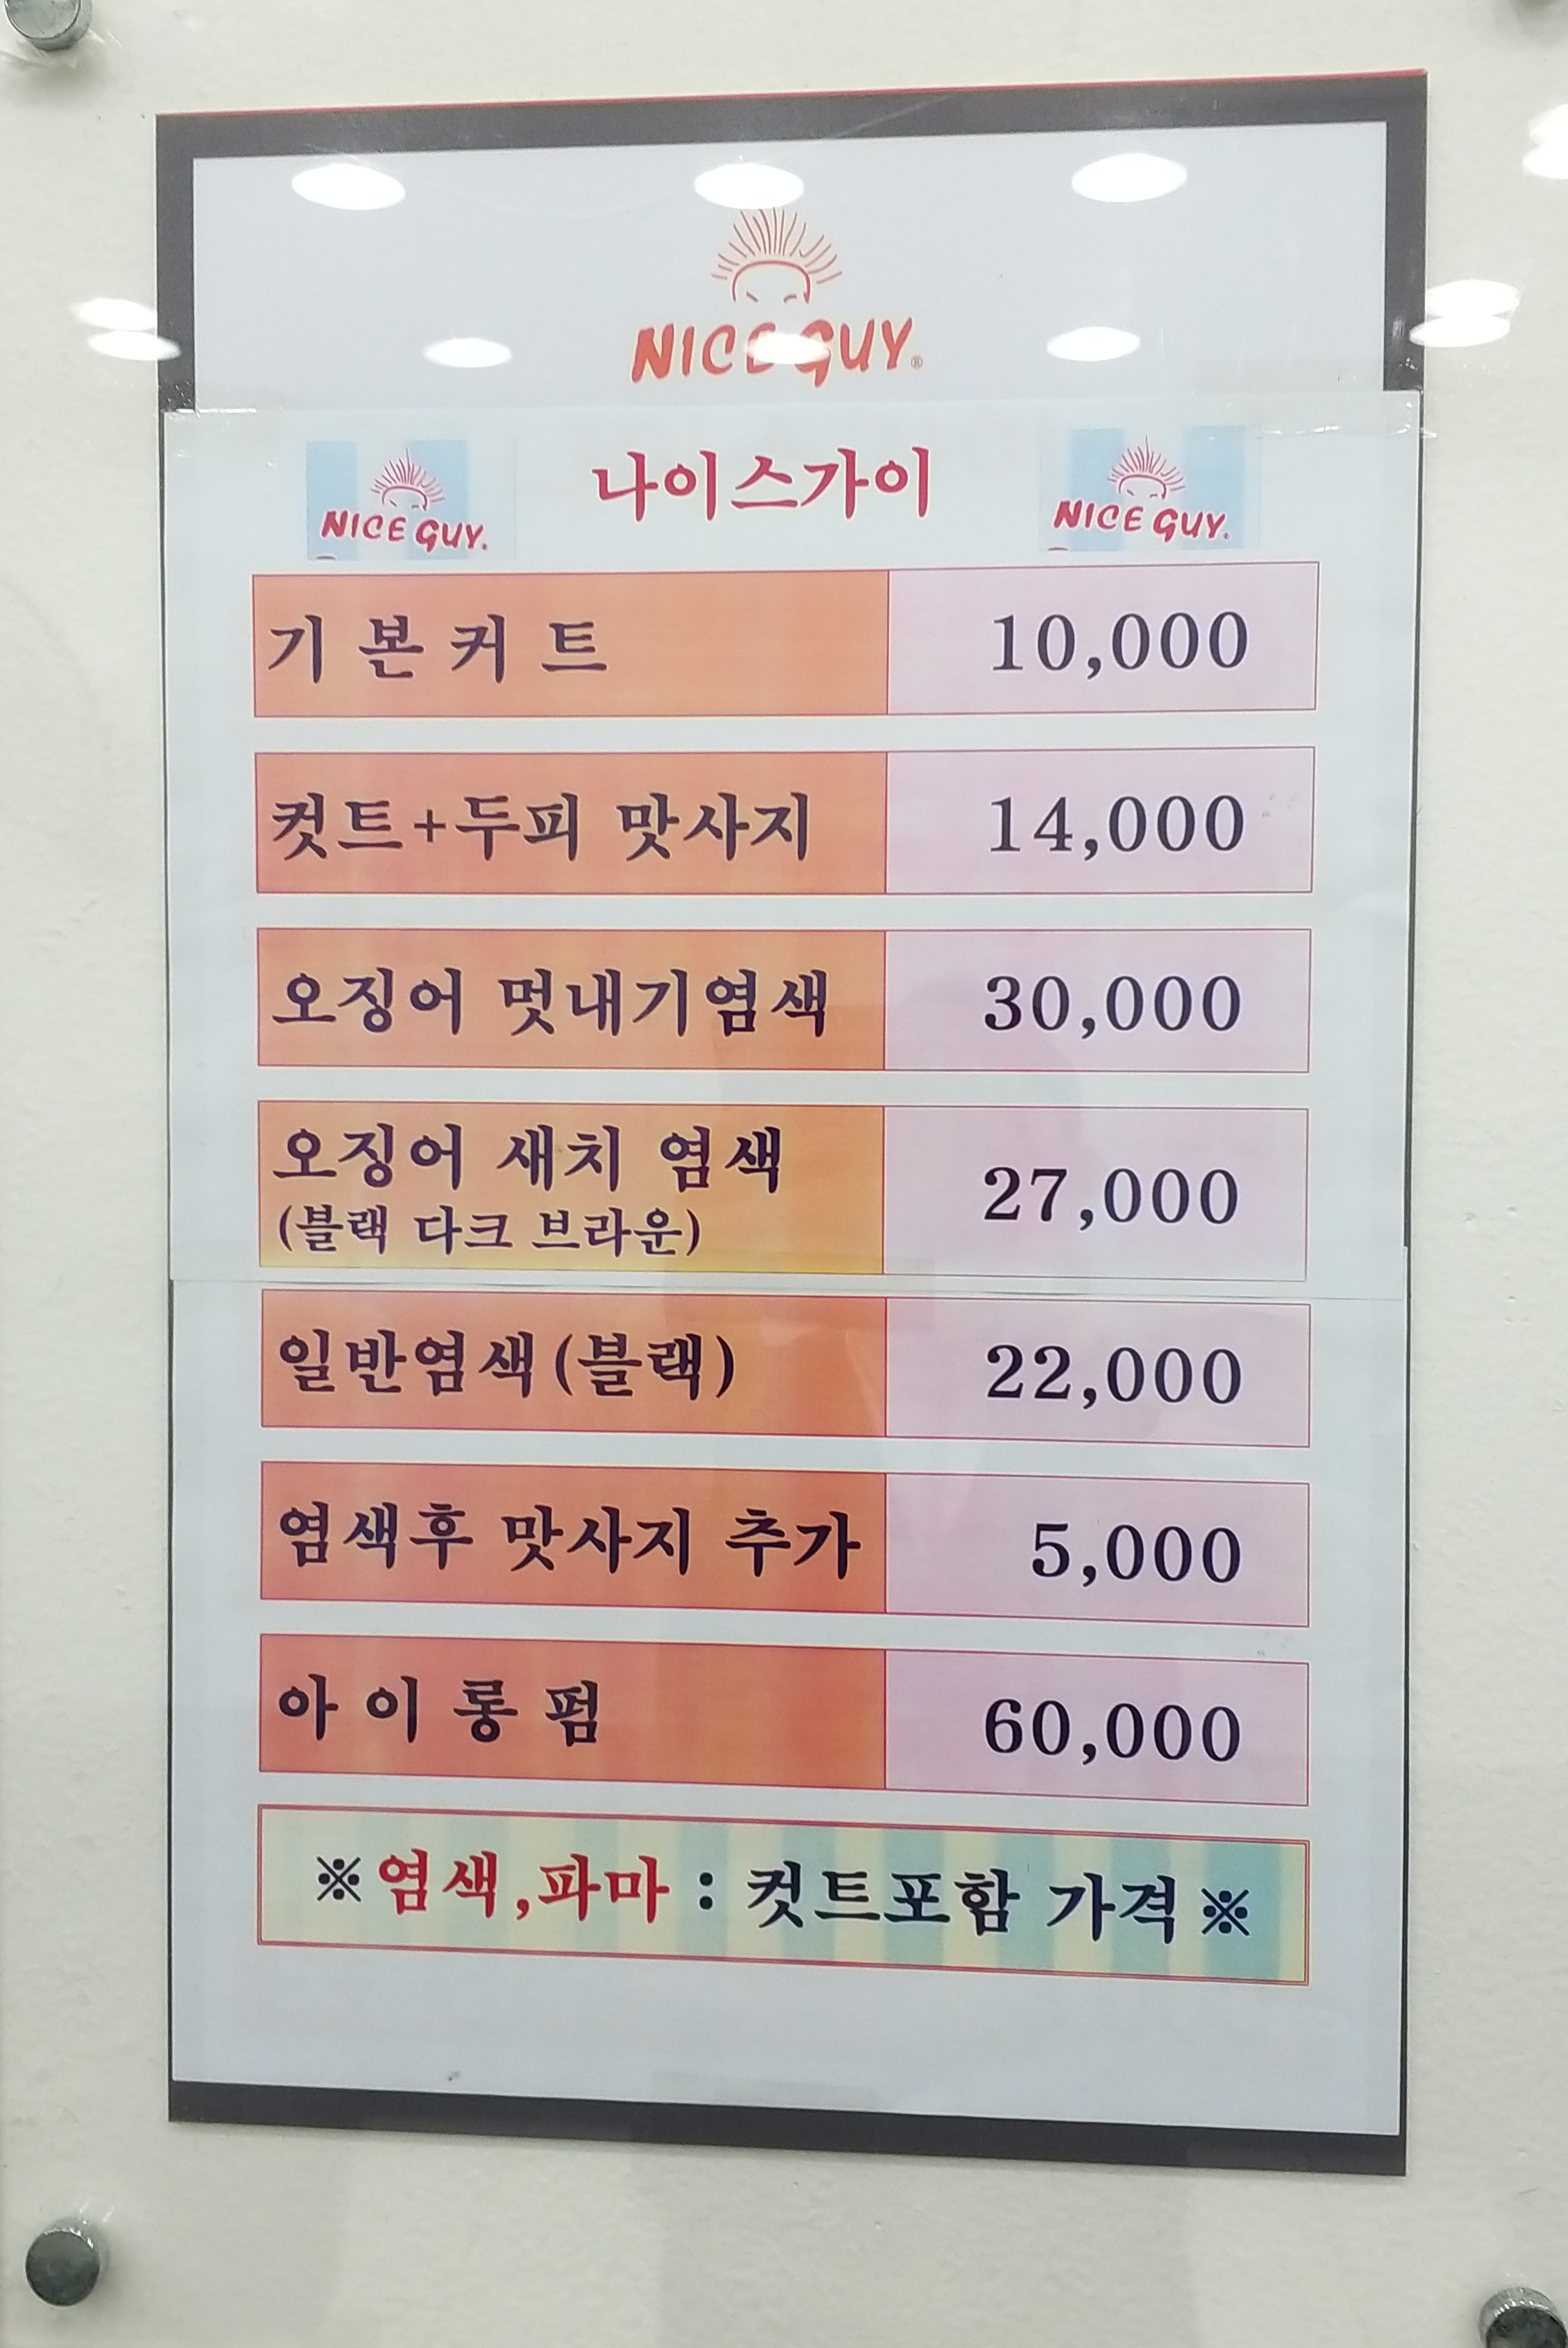 NICE GUY®
NICE GUY. 나이스가이 NICE GUY.
기 본 커 트 10,000
컷트+두피 맛사지 14,000
오징어 멋내기염색 30,000
오징어 새치 염색 27,000
(블랙 다크 브라운)
일반염색(블랙) 22,000
염색후 맛사지 추가 5,000
아 이 롱 펌 60,000
※염색,파마 : 컷트포함 가격※